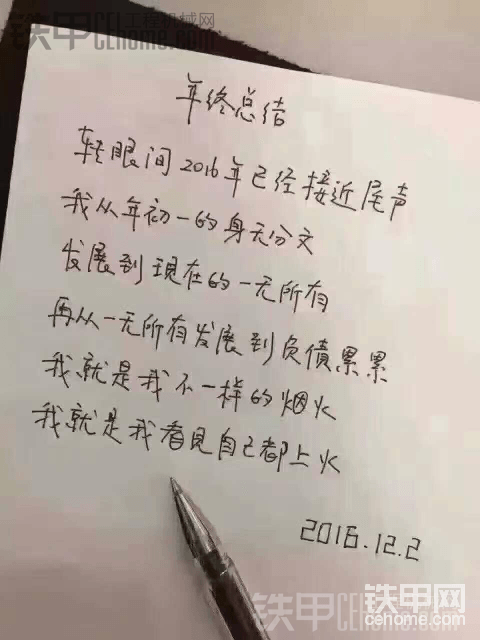 铁甲 工程机械网
CEhome.com
年终总结
转眼间2016年已经接近尾声
我从年初一的身无分文
发展到现在的一无所有
再从一无所有发展到负债累累
我就是我不一样的烟火
我就是我看见自己都上火
2016.12.2
铁甲网
铁甲 CEhome.com
cehome.com